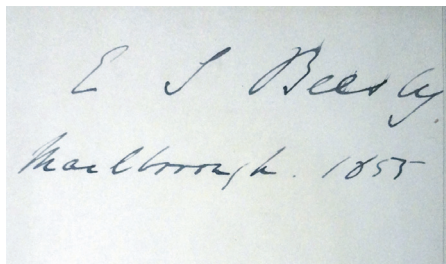 E S Beesly.
Marlborough. 1855